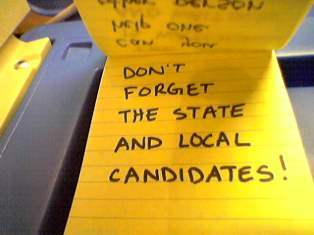 NEIL ONE
CAN
DON'T
FORGET
THE STATE
AND LOCAL
CANDIDATES!